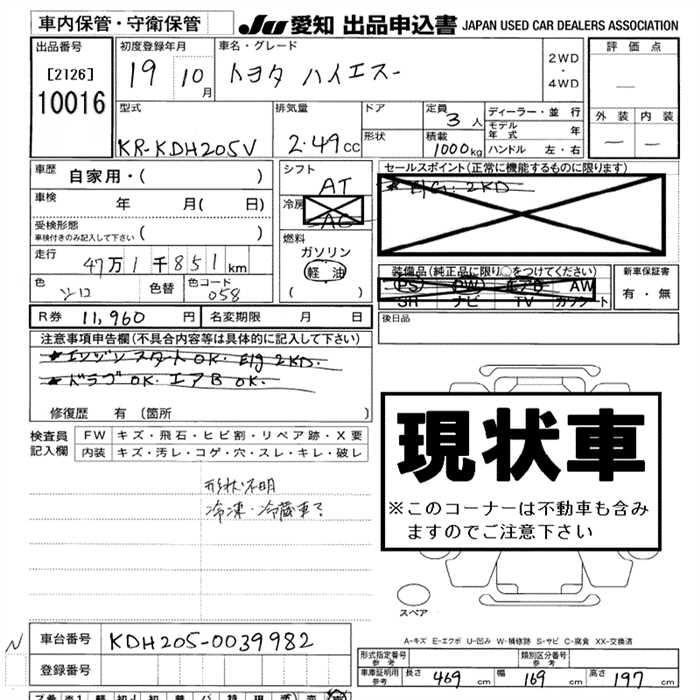 車内保管・守衛保管
JU 愛知 出品申込書 JAPAN USED CAR DEALERS ASSOCIATION
出品番号 初度登録年月 車名・グレード 評価点
[2126] 19 10月 トヨタ ハイエース 2WD・4WD
10016
型式 排気量 ドア 定員 3人 ディーラー・並行 外装 内装
モデル年式 年
KR-KDH205V 2.49cc 形状 積載 1000kg ハンドル 左・右
車歴 自家用・( ) シフト AT セールスポイント(正常に機能するものに限ります)
E/G. 2KD
車検 年 月( 日) 冷房 AC
受検形態
車検付きのみ記入して下さい ( ) 燃料 ガソリン
走行 47万1千851km 軽油 装備品(純正品に限り○をつけてください) 新車保証書
PS PW エアB AW 有・無
色 シロ 色替 色コード 058 ( ) SR ナビ TV カワシート
R券 11,960円 名変期限 月 日 後日品
注意事項申告欄(不具合内容等は具体的に記入して下さい)
エンジンスタートOK. E/g 2KD.
ドラブOK. エアB OK.
修復歴 有(箇所 )
検査員記入欄 FW キズ・飛石・ヒビ割・リペア跡・X要
内装 キズ・汚レ・コゲ・穴・スレ・キレ・破レ
形状不明
冷凍・冷蔵車?
現状車
※このコーナーは不動車も含み
ますのでご注意下さい
スペア
A-キズ E-エクボ U-凹み W-補修跡 S-サビ C-腐食 XX-交換済
N 車台番号 KDH205-0039982
形式指定番号 参考 類別区分番号 参考
登録番号 車庫証明用 参考 長さ 469cm 幅 169cm 高さ 197cm